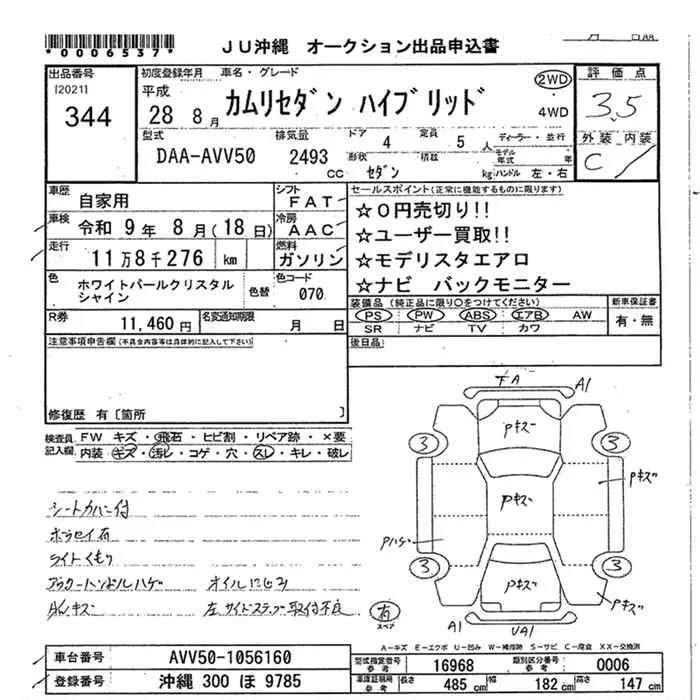 *0006537*
JU沖縄 オークション出品申込書
月 日
出品番号 初度登録年月 車名・グレード 2WD 評価点
[2021] 平成
344 28 8月 カムリセダン ハイブリッド 4WD 3.5
型式 排気量 ドア 4 定員 5人 ディーラー・並行 外装 内装
DAA-AVV50 2493 CC 形状 セダン 積載 kg モデル年式 年 ハンドル 左・右 C
車歴 自家用 シフト FAT セールスポイント(正常に機能するものに限ります)
車検 令和 9年 8月(18日) 冷房 AAC ☆0円売切り!!
走行 11万8千276 km 燃料 ガソリン ☆ユーザー買取!!
☆モデリスタエアロ
色 ホワイトパールクリスタルシャイン 色替 色コード 070 ☆ナビ バックモニター
R券 11,460円 名変通知期限 月 日
装備品(純正品に限り○をつけてください) 新車保証書
PS PW ABS エアB AW 有・無
SR ナビ TV カワ
注意事項申告欄(不具合内容等は具体的に記入して下さい) 後日品
修復歴 有[箇所 ]
検査員記入欄 FW キズ・飛石・ヒビ割・リペア跡・×要
内装 キズ・汚レ・コゲ・穴・スレ・キレ・破レ
シートカバー付
ライトくもり
アウターハンドルハゲ オイルにじみ
左サイドステップ取付不良
FA A1
Pキズ
3 3
Pキズ Pキズ
Pハゲ
3 3
Pキズ Pキズ
A1 UA1
有 スペア
A-キズ E-エクボ U-凹み W-補修跡 S-サビ C-腐食 XX-交換済
車台番号 AVV50-1056160
登録番号 沖縄 300 ほ 9785
型式指定番号 参考 16968 類別区分番号 参考 0006
車庫証明用 参考 長さ 485cm 幅 182cm 高さ 147cm